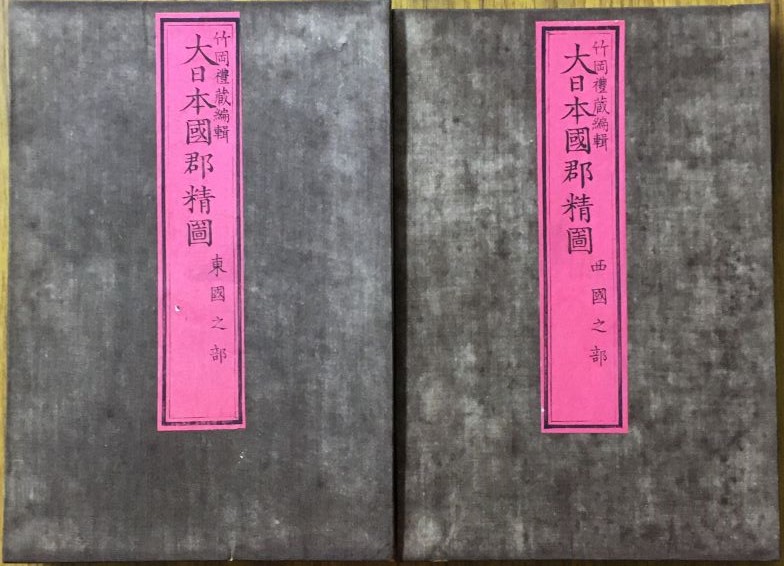 竹岡禮蔵編輯
大日本國郡精圖
東國之部
竹岡禮蔵編輯
大日本國郡精圖
西國之部